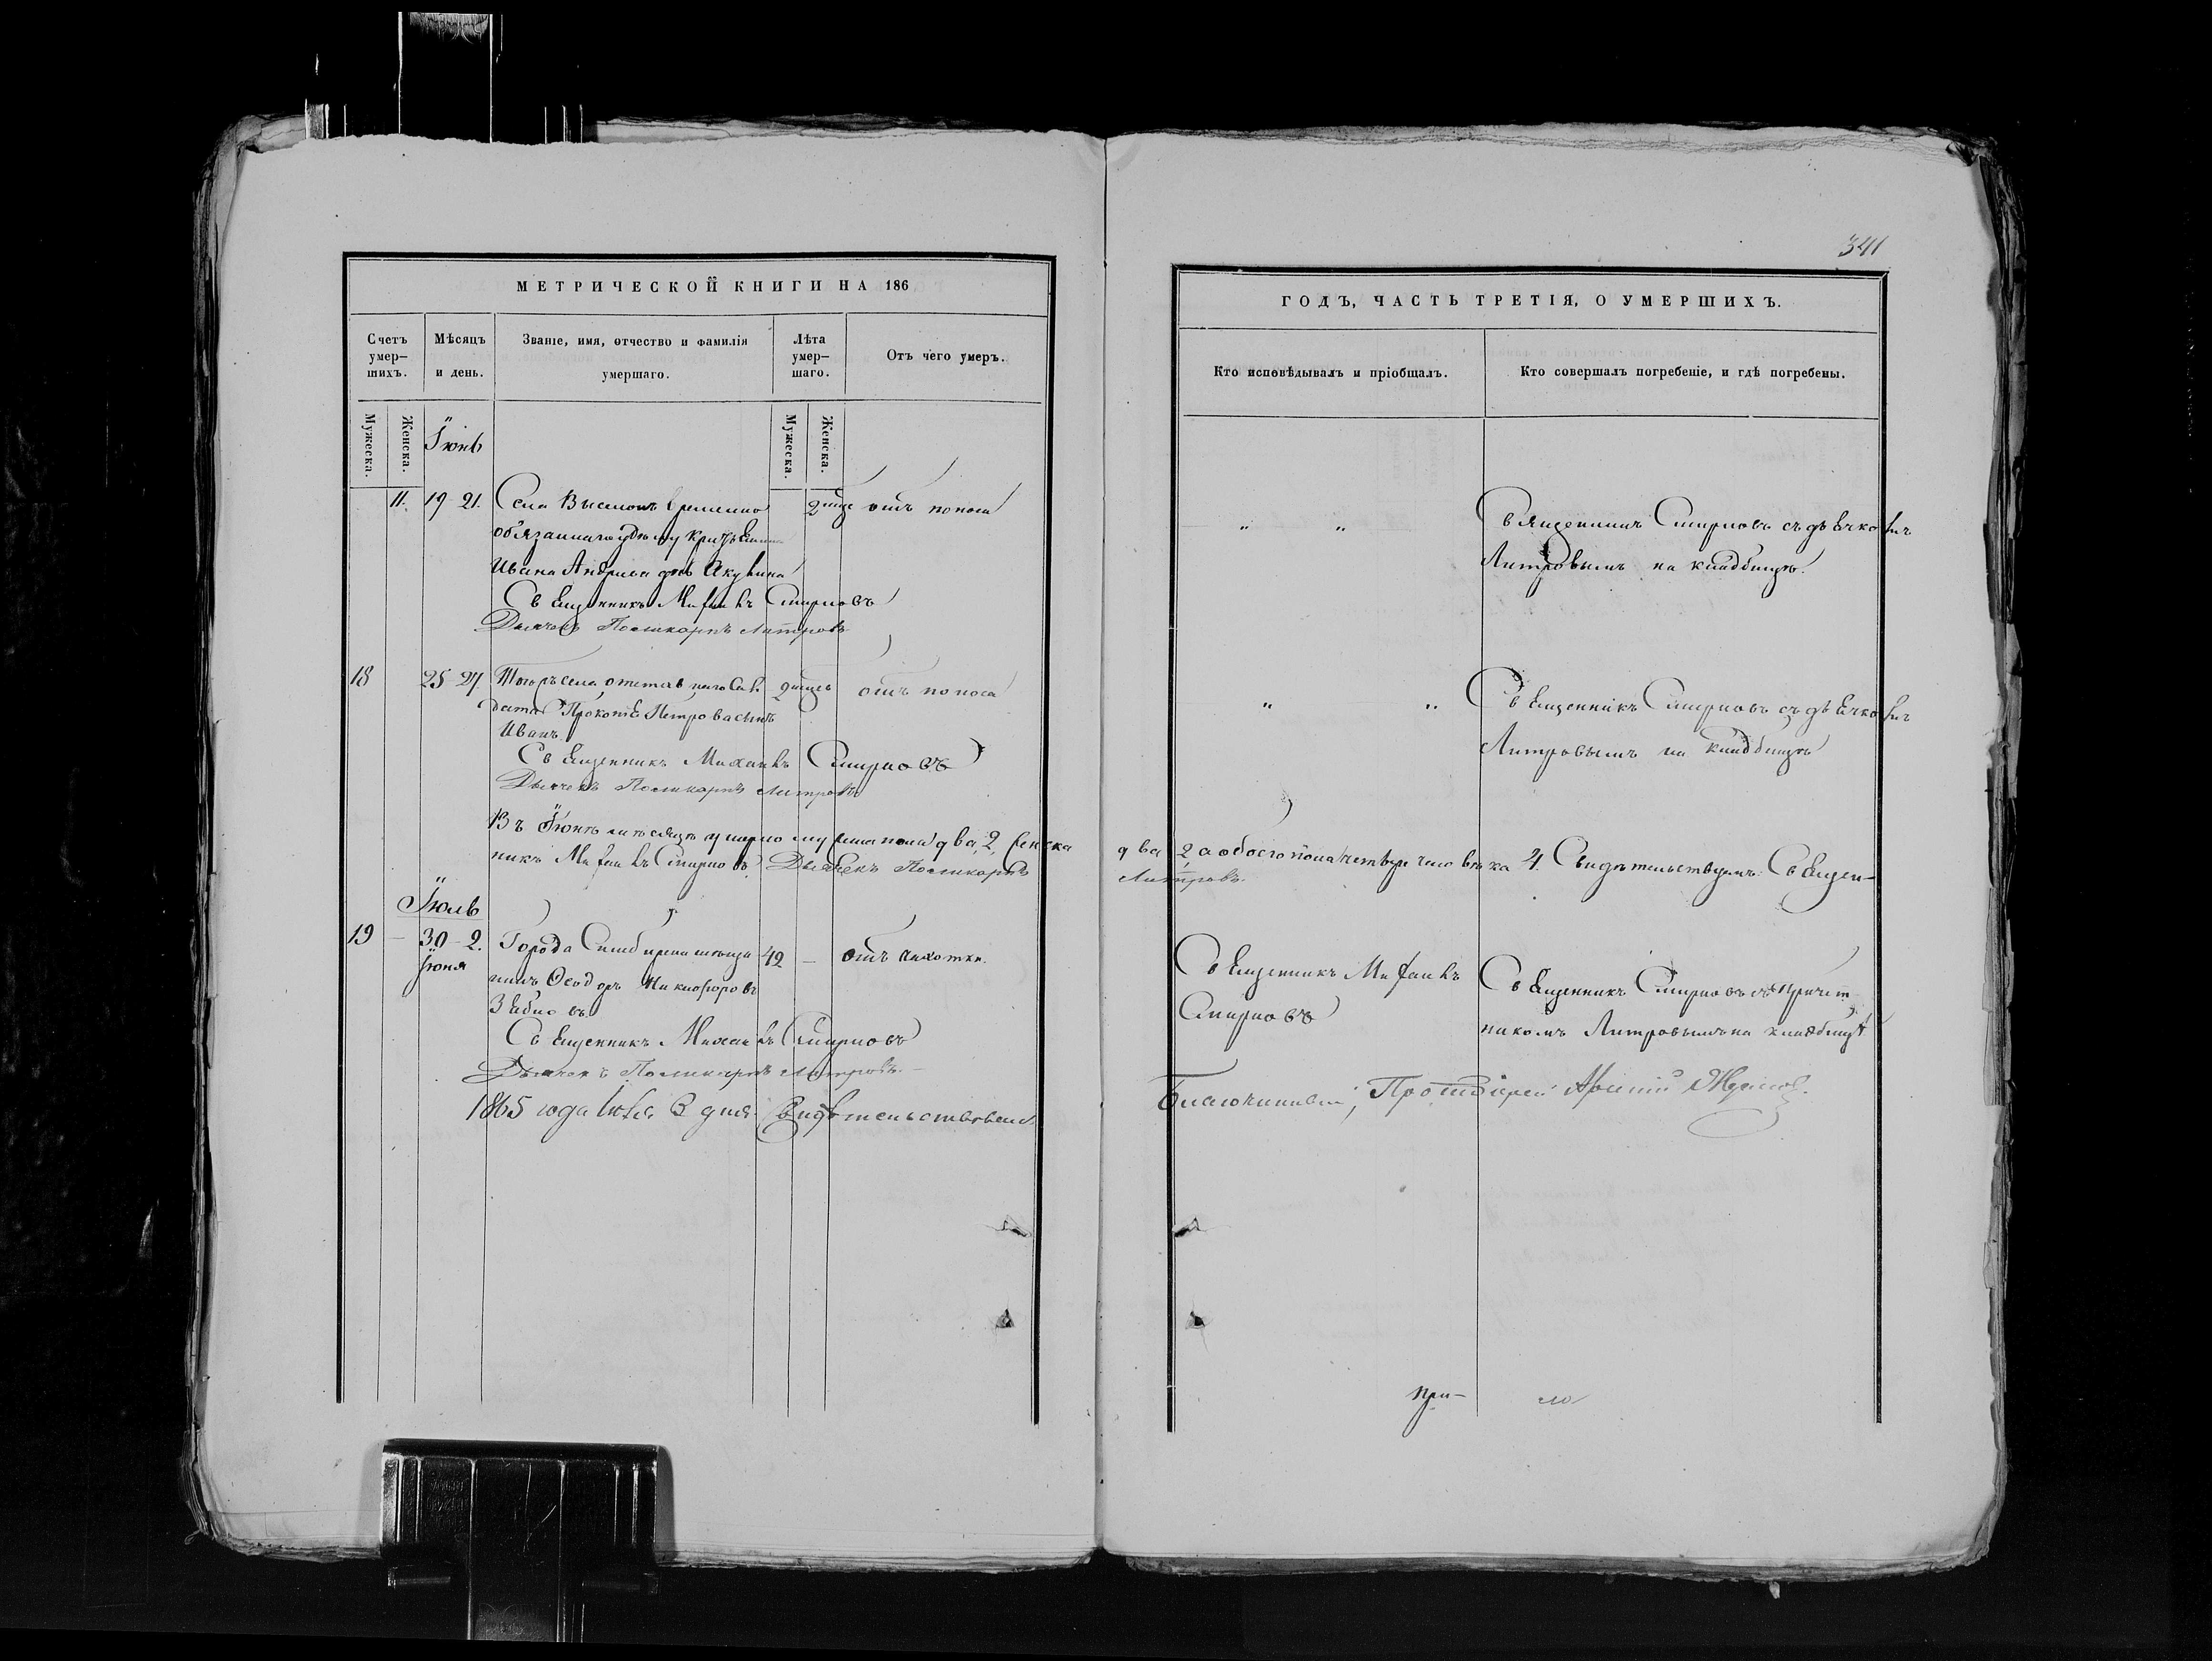 341
МЕТРИЧЕСКОЙ КНИГИ НА 186
ГОДЪ, ЧАСТЬ ТРЕТІЯ, О УМЕРШИХЪ.
Счетъ умер-
шихъ.
Мѣсяцъ
и день.
Званіе, имя, отчество и фамилія
умершаго.
Лѣта
умер-
шаго.
Отъ чего умеръ.
Кто исповѣдывалъ и пріобщалъ.
Кто совершалъ погребеніе, и гдѣ погребены.
Мужеска.
Женска.
Іюнь
Мужеска.
Женска.
11.
19-21.
Села временно
обязаннаго
Ивана Андреева дочь Акулина
отъ поноса
" "
Священникъ Смирновъ съ дьячкомъ
Литровымъ на кладбищѣ.
Священникъ Михаилъ Смирновъ
Дьячекъ Поликарпъ Литровъ
18
25-27.
Того села
Петрова сынъ
Иванъ.
отъ поноса
" "
Священникъ Смирновъ съ дьячкомъ
Литровымъ на кладбищѣ
Священникъ Михаилъ Смирновъ
Дьячекъ Поликарпъ Литровъ
Въ Іюнѣ мѣсяцѣ умерло муж. пола два, 2, женска
два 2 а обоего пола четыре человѣка 4. Свидѣтельствуемъ: Священ-
никъ Михаилъ Смирновъ Дьячекъ Поликарпъ
Литровъ.
Іюль
19
30-2.
Іюня
Города Симбирска мѣща
нинъ Ѳеодоръ Никифоровъ
42
отъ чахотки.
Священникъ Михаилъ
Смирновъ
Священникъ Смирновъ съ причет
никомъ Литровымъ на кладбищѣ
Священникъ Михаилъ Смирновъ
Дьячекъ Поликарпъ Литровъ.
1865 года 3 дня. Свидѣтельствовалъ
Благочинный, Протоіерей
При-